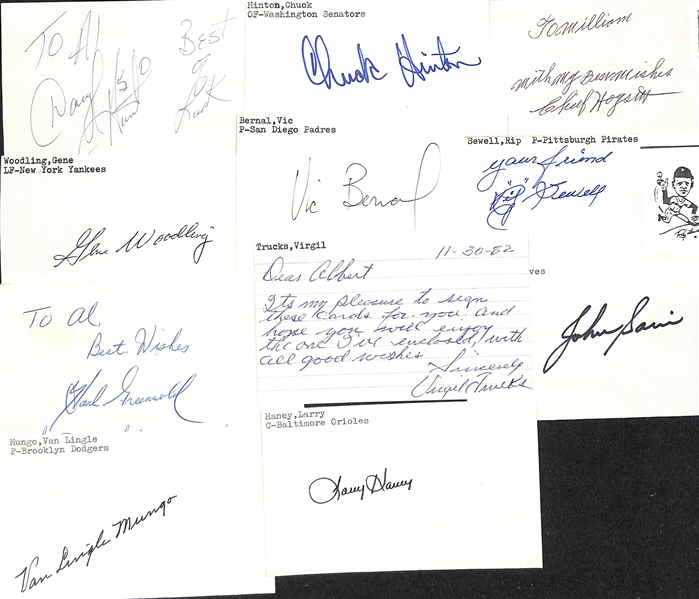 To Al
Best
of
Luck
Hinton, Chuck
OF-Washington Senators
Chuck Hinton
To William
with my best wishes
Chief Hogsett
Woodling, Gene
LF-New York Yankees
Gene Woodling
Bernal, Vic
P-San Diego Padres
Vic Bernal
Sewell, Rip P-Pittsburgh Pirates
your friend
"Rip" Sewell
Trucks, Virgil
11-30-82
Dear Albert
Its my pleasure to sign
these cards for you. and
hope you will enjoy
the one I've enclosed, with
all good wishes
Sincerely
Virgil Trucks
ves
John Sain
To Al,
Best Wishes
Mungo, Van Lingle
P-Brooklyn Dodgers
Van Lingle Mungo
Haney, Larry
C-Baltimore Orioles
Larry Haney